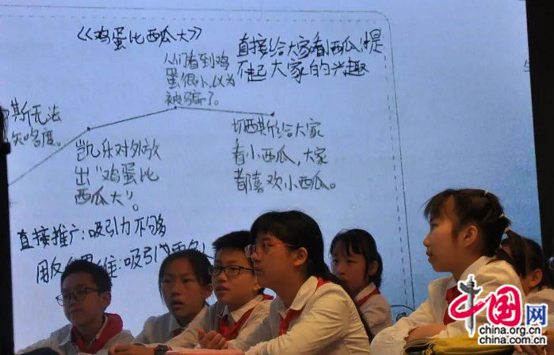 《鸡蛋比西瓜大》
人们看到鸡
蛋很小,以为
被骗了。
直接给大家看西瓜,提
不起大家的兴趣
斯无法
知名度。
凯乐对外放
出“鸡蛋比
西瓜大”。
切西斯给大家
看小西瓜,大家
都喜欢小西瓜。
直接推广:吸引力不够
用反 思维:吸引
中国网
china.org.cn
china.com.cn